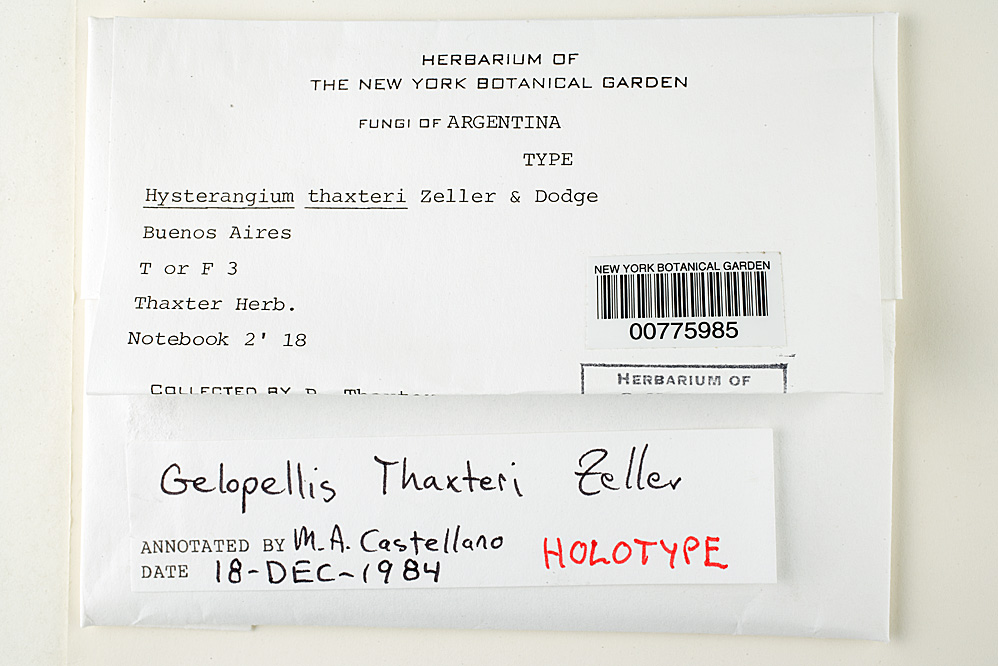 HERBARIUM OF
THE NEW YORK BOTANICAL GARDEN
FUNGI OF ARGENTINA
TYPE
Hysterangium thaxteri Zeller & Dodge
Buenos Aires
T or F 3
Thaxter Herb.
Notebook 2' 18
NEW YORK BOTANICAL GARDEN
00775985
HERBARIUM OF
COLLECTED BY R. Thaxter
Gelopellis Thaxteri Zeller
ANNOTATED BY M.A. Castellano
DATE 18-DEC-1984
HOLOTYPE